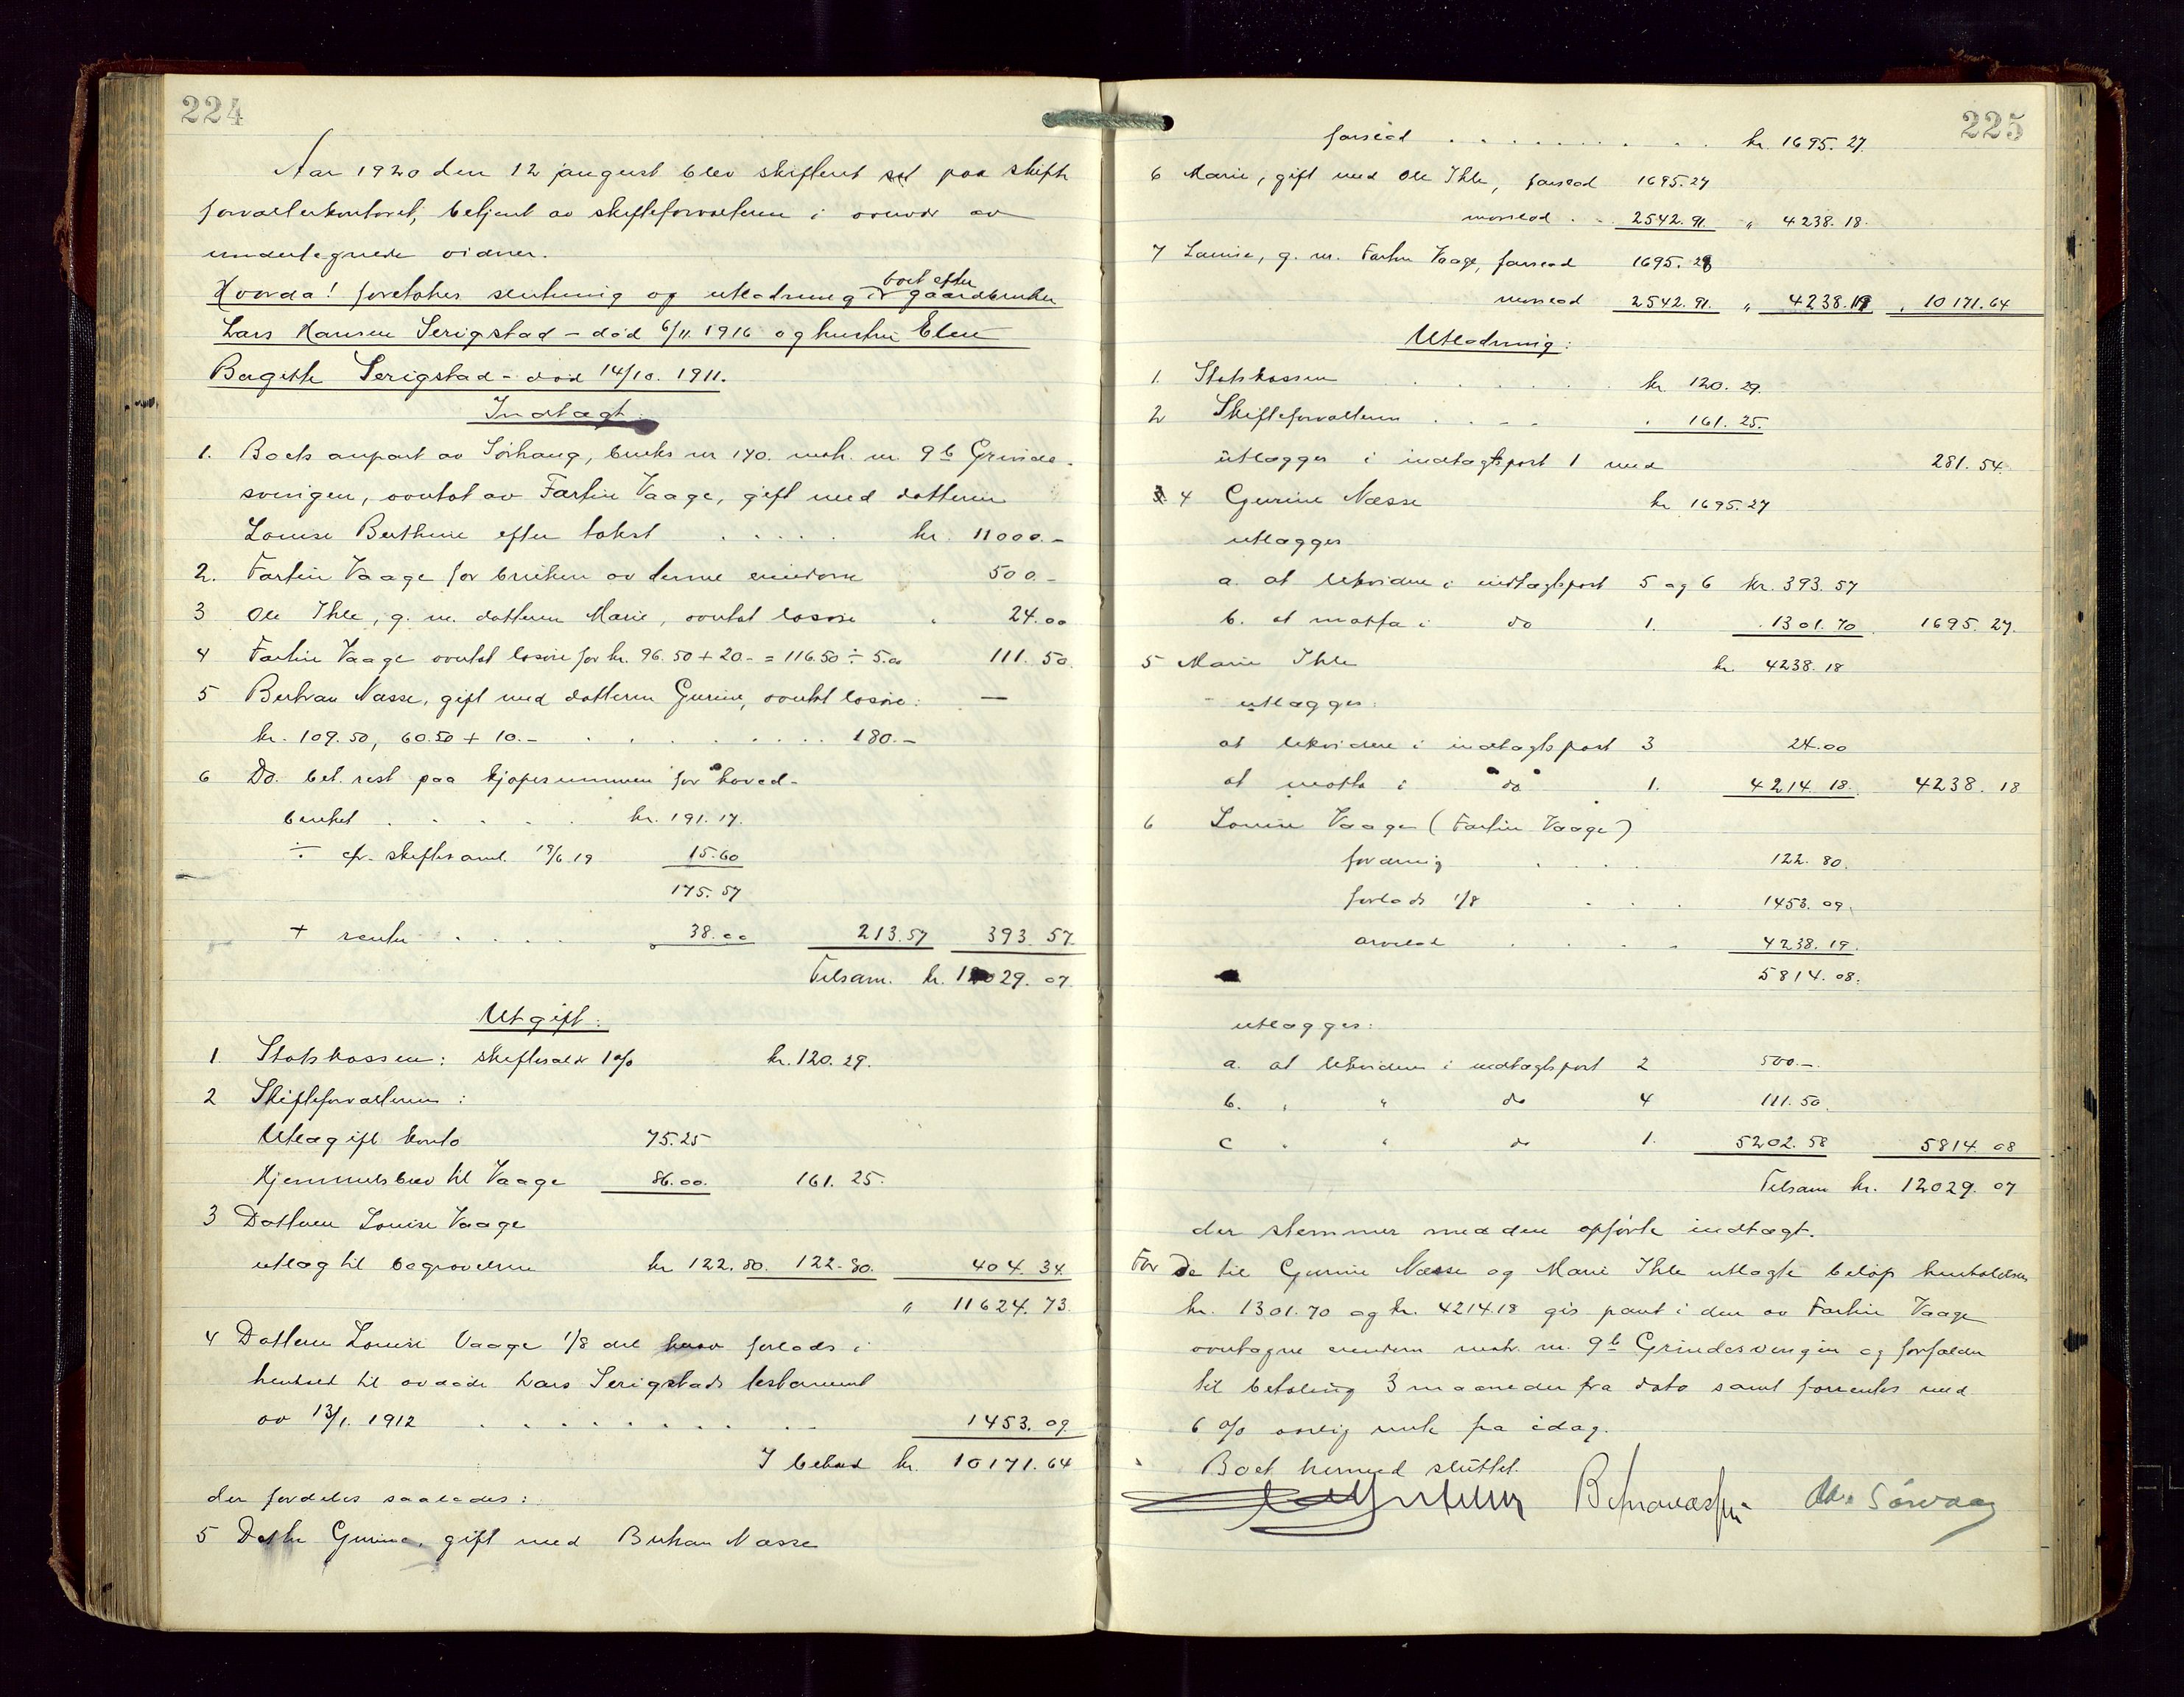 224
Aar 1920 den 12 august blev skifteret sat paa skifte
forvalterkontoret, betjent av skifteforvalteren i overvær av
undertegnede vidner.
Hvorda! foretokes slutning og utlodning i boet efter gaardbruker
Lars Hansen Serigstad – död 6/11. 1916 og hustru Elen
Bergitte Serigstad – död 14/10. 1911.
Indtægt:
1. Boets anpart av Sörhaug, bruks nr 140. matr. nr. 9b Grindes-
svingen, overtat av Fartin Vaage, gift med datteren
Louise Berthine efter takst . . . . . kr. 11000.–
2. Fartin Vaage for bruken av denne eiendom 500.–
3 Ole Ihle, g. m. datteren Marie, overtat lösöre " 24.00
4 Fartin Vaage overtat lösöre for kr. 96.50 + 20.– = 116.50 ÷ 5.00 111.50.
5 Bertran Næsse, gift med datteren Gurine, overtat lösöre: —
kr. 109.50, 60.50 + 10.– . . . . . . 180.–
6 Do. bet. rest paa kjöpesummen for hoved-
bruket . . . . . kr. 191.17.
÷ cfr. skiftesaml. 19/6.19 15.60
175.57
+ renter . . . . 38.00 213.57 393.57.
Tilsam. kr. 12029.07.
Utgift:
1 Statskassen: skifteavgift 1 o/o kr. 120.29.
2 Skifteforvalteren:
Utlagt ifl konto 75.25
Hjemmelsbrev til Vaage 86.00. 161.25.
3 Datteren Louise Vaage
utlæg til begravelsen kr 122.80. 122.80. 404.34.
" 11624.73.
4 Datteren Louise Vaage 1/8 del forlods i
henhold til avdöde Lars Serigstads testament
av 13/1. 1912 . . . . . . . . . 1453.09.
I behold kr. 10171.64
der fordeles saaledes:
5 Datter Gurine, gift med Bertran Næsse
225
farslod . . . . . . . . . kr. 1695.27.
6 Marie, gift med Ole Ihle, farslod 1695.27
morslod . . 2542.91. " 4238.18.
7 Louise, g. m. Fartin Vaage, farslod 1695.28
morslod 2542.91. " 4238.19 " 10171.64
Utlodning:
1. Statskassen . . . . . . kr. 120.29.
2 Skifteforvalteren . . . . " 161.25.
utlægges i indtægtspost 1 med 281.54.
4 Gurine Næsse kr 1695.27
utlægges
a. at likvidere i indtægtspost 5 og 6 kr. 393.57
b. at motta i do 1. 1301.70. 1695.27.
5 Marie Ihle kr. 4238.18
utlægges:
at likvidere i indtægtspost 3 24.00
at motta i do 1. 4214.18. 4238.18
6 Louise Vaage (Fartin Vaage)
fordring . . . . 122.80.
forlods 1/8 . . . 1453.09.
arvelod . . . . 4238.19.
5814.08.
utlægges:
a. at likvidere i indtægtspost 2 500.–.
b. " " do 4 111.50.
c " " do 1. 5202.58 5814.08
Tilsam kr. 12029.07
der stemmer med den opförte indtægt.
For de til Gurine Næsse og Marie Ihle utlagte belöp henholdsvis
kr. 1301.70 og kr. 4214.18 gis pant i den av Fartin Vaage
overtagne eiendom matr. nr. 9b Grindesvingen og forfalder
til betaling 3 maaneder fra dato samt forrentes med
6 o/o aarlig rente fra idag.
Boet hermed sluttet.
Sörvaag